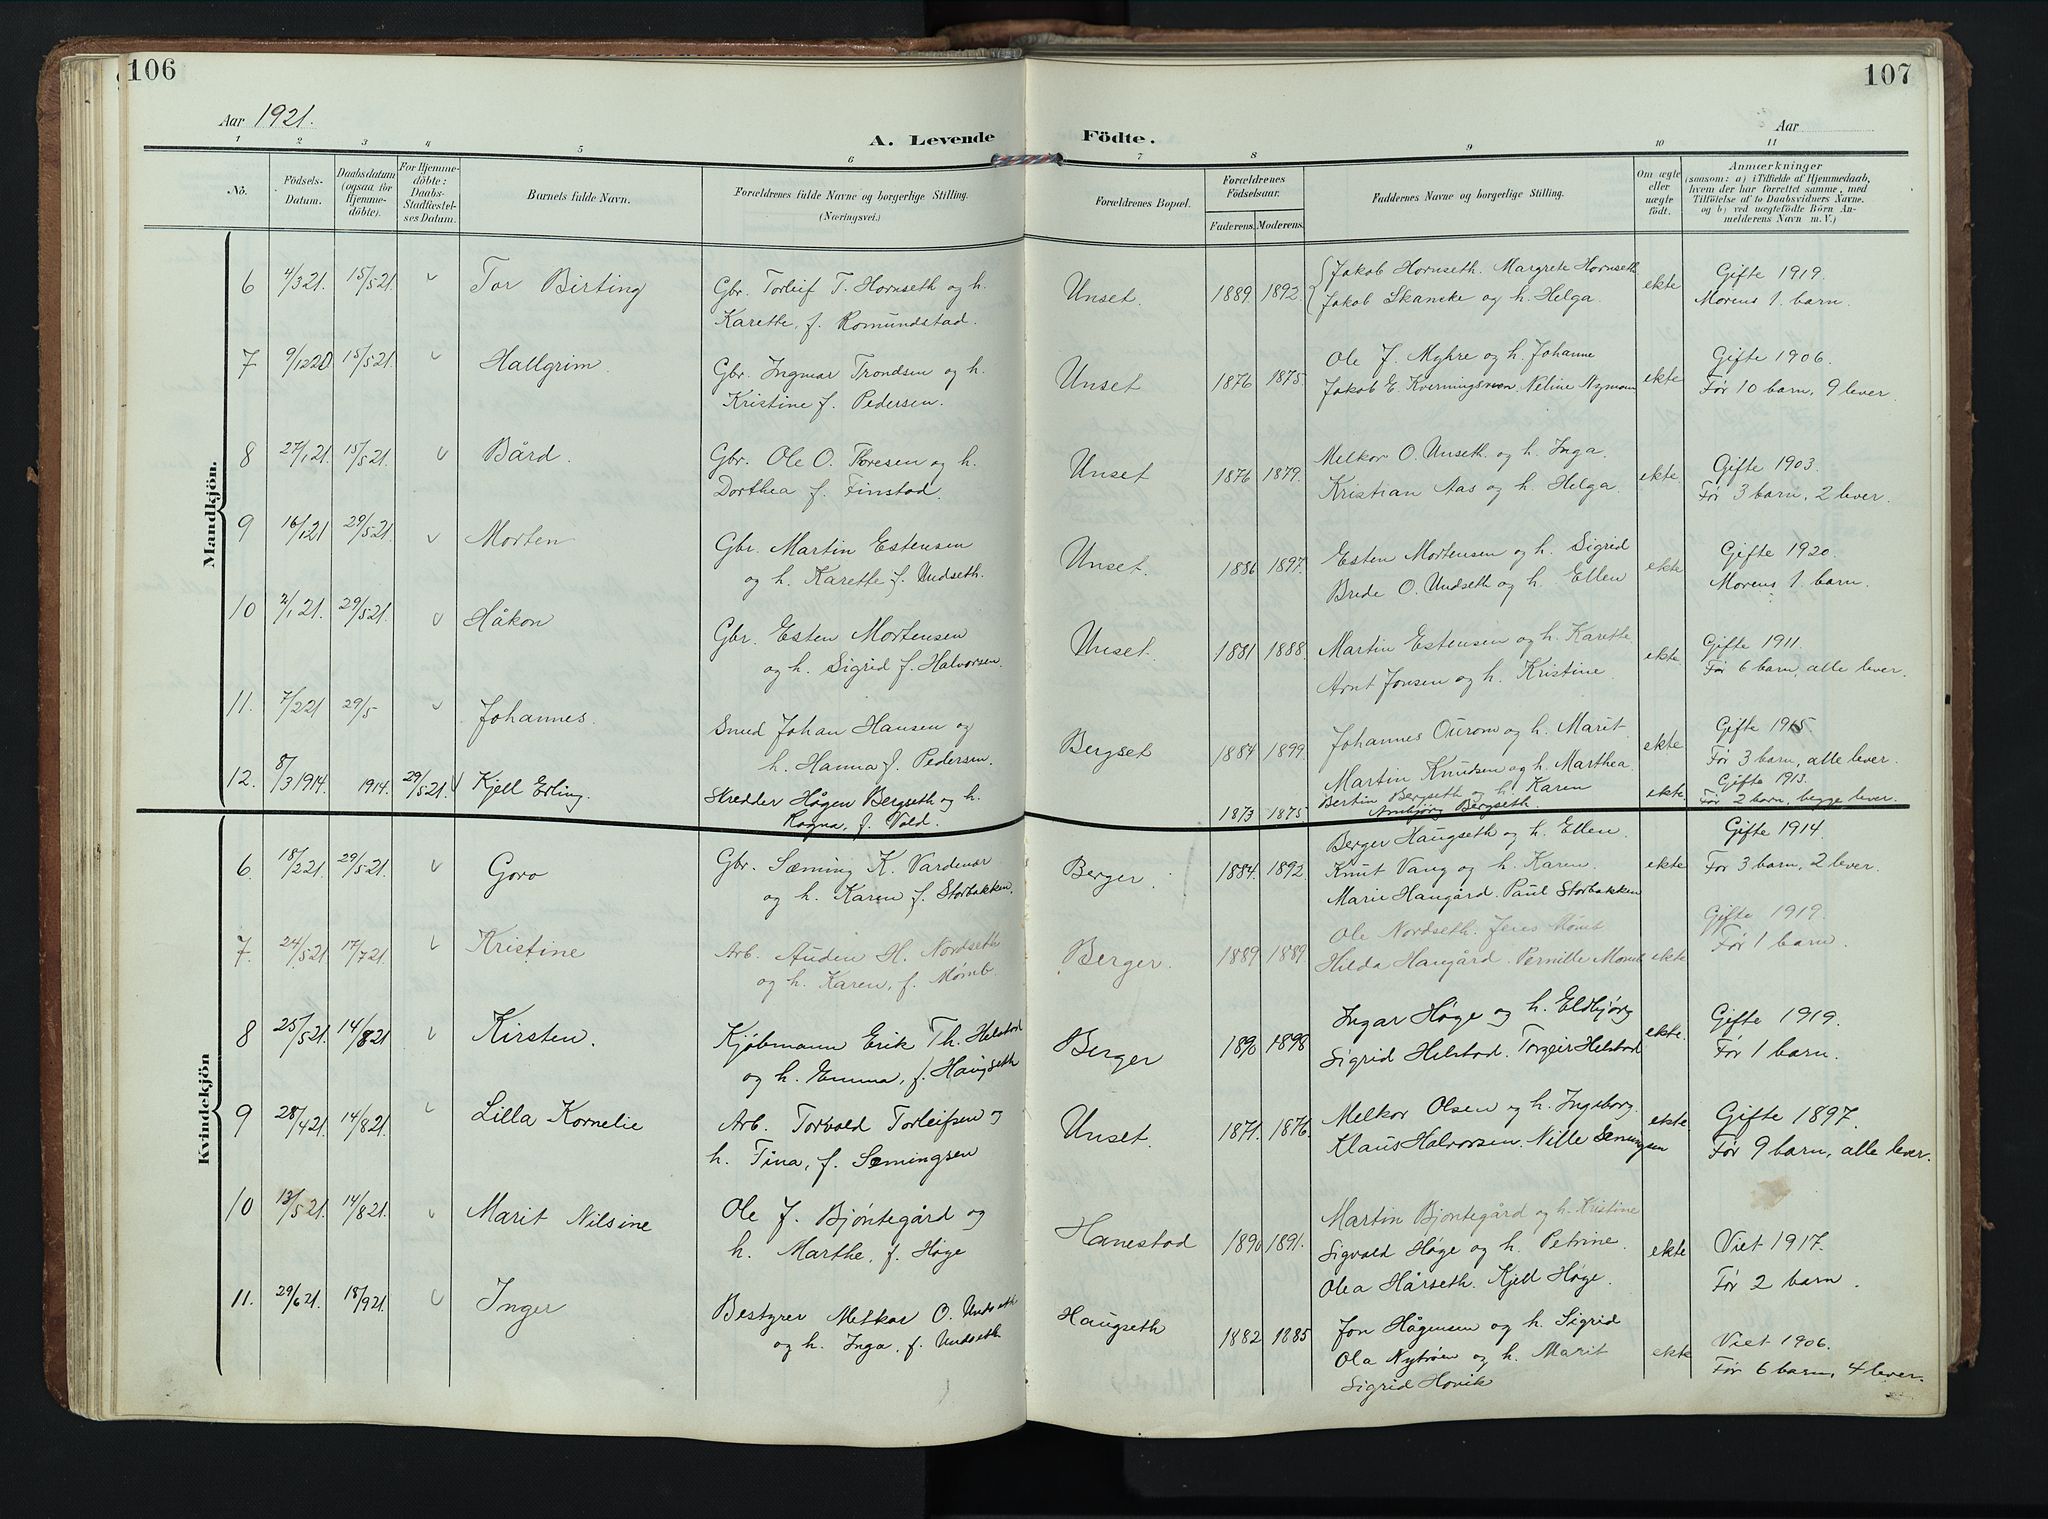 106
107
Aar 1921.
Aar
A. Levende Födte.
1 2 3 4 5 6 7 8 9 10 11
No. Födsels-Datum. Daabsdatum (ogsaa for Hjemmedöbte). For Hjemmedöbte: Daabs-Stadfæstelses Datum. Barnets fulde Navn. Forældrenes fulde Navne og borgerlige Stilling. (Næringsvei.) Forældrenes Bopæl. Forældrenes Födselsaar. Faderens. Moderens. Faddernes Navne og borgerlige Stilling. Om ægte eller uægte födt. Anmærkninger (saasom: a) i Tilfælde af Hjemmedaab, hvem der har forrettet samme, med Tilföielse af to Daabsvidners Navne. og b) ved uægtefödte Börn Anmelderens Navn m. V.)
Mandkjön.
6 4/3 21. 15/5 21. Tor Birting Gbr. Torleif T. Hornseth og h. Unset. 1889. 1892. Jakob Hornseth. Margrete Hornseth ekte Gifte 1919.
Karette, f. Romundstad. Jakob Skancke og h. Helga. Morens 1. barn.
7 9/12 20 15/5 21. Hallgrim. Gbr. Ingmar Trondsen og h. Unset 1876 1875. Ole J. Myhre og h. Johanne ekte Gifte 1906.
Kristine f. Pedersen. Jakob E. Kverningsmoen Neline Nymoen Før 10 barn, 9 lever.
8 27/1 21. 15/5 21. Bård. Gbr. Ole O. Toresen og h. Unset 1876 1879. Melkor O. Unseth. og h. Inga. ekte. Gifte 1903.
Dorthea f. Finstad. Kristian Aas og h. Helga. Før 3 barn, 2 lever.
9 16/1 21. 29/5 21. Morten Gbr. Martin Estensen Unset. 1886 1897. Esten Mortensen og h. Sigrid ekte Gifte 1920.
og h. Karette f. Undseth. Brede O. Undseth og h. Ellen Morens 1. barn.
10 2/1 21. 29/5 21. Håkon Gbr. Esten Mortensen Unset. 1881 1888. Martin Estensen og h. Karette. ekte. Gifte 1911.
og h. Sigrid f. Halvorsen. Arnt Jonsen og h. Kristine. Før 6 barn, alle lever.
11. 7/2 21 29/5 Johannes. Smed Johan Hansen og Bergset 1884 1899. Johannes Ourom og h. Marit. ekte Gifte 1915.
h. Hanna f. Pedersen. Martin Knudsen og h. Marthea. Før 3 barn, alle lever.
12. 8/3 1914. 1914. 29/5 21. Kjell Erling. Skredder Hågen Bergseth og h. 1873 1875 Bertin Bergseth og h. Karen ekte Gifte 1913.
Ragna, f. Vold. Arnbjørg Bergseth. Før 2 barn, begge lever.
Kvindekjön
6. 18/2 21. 29/5 21. Goro Gbr. Sæming K. Vardenær Berger. 1884. 1892. Berger Haugseth og h. Ellen. ekte Gifte 1914.
og h. Karen f. Storbakken. Knut Vang og h. Karen. Før 3 barn, 2 lever.
Marie Haugård. Paul Storbakken
7. 24/5 21. 17/7 21. Kristine Arb. Auden H. Nordseth Berger. 1889 1889. Ole Nordseth. Jens Mømb ekte Gifte 1919.
og h. Karen, f. Mømb. Hilda Haugård. Pernille Momb Før 1 barn.
8 25/5 21. 14/8 21. Kirsten. Kjøbmann Erik Th. Helstad Berger 1890 1898 Ingar Høge og h. Eldbjørg ekte. Gifte 1919.
og h. Emma, f. Haugseth Sigrid Helstad. Torgeir Helstad Før 1 barn.
9 28/4 21. 14/8 21. Lilla Kornelie Arb. Torvald Torleifsen og Unset. 1871. 1876. Melkor Olsen og h. Ingeborg. ekte. Gifte 1897.
h. Tina, f. Semingsen Klaus Halvorsen. Nille Semingsen Før 9 barn, alle lever.
10 13/5 21. 14/8 21. Marit Nilsine Ole J. Bjøntegård og Hanestad 1890 1891. Martin Bjøntegård og h. Kristine ekte Viet 1917.
h. Marthe, f. Høge Sigvald Høge og h. Petrine. Før 2 barn.
Olea Hårseth. Kjell Høge.
11. 29/6 21. 18/9 21. Inger Bestyrer Melkor O. Undseth Haugseth 1882 1885 Jon Hågensen og h. Sigrid ekte Viet 1906.
og h. Inga, f. Undseth Ola Nytrøen og h. Marit Før 6 barn, 4 lever.
Sigrid Hovik